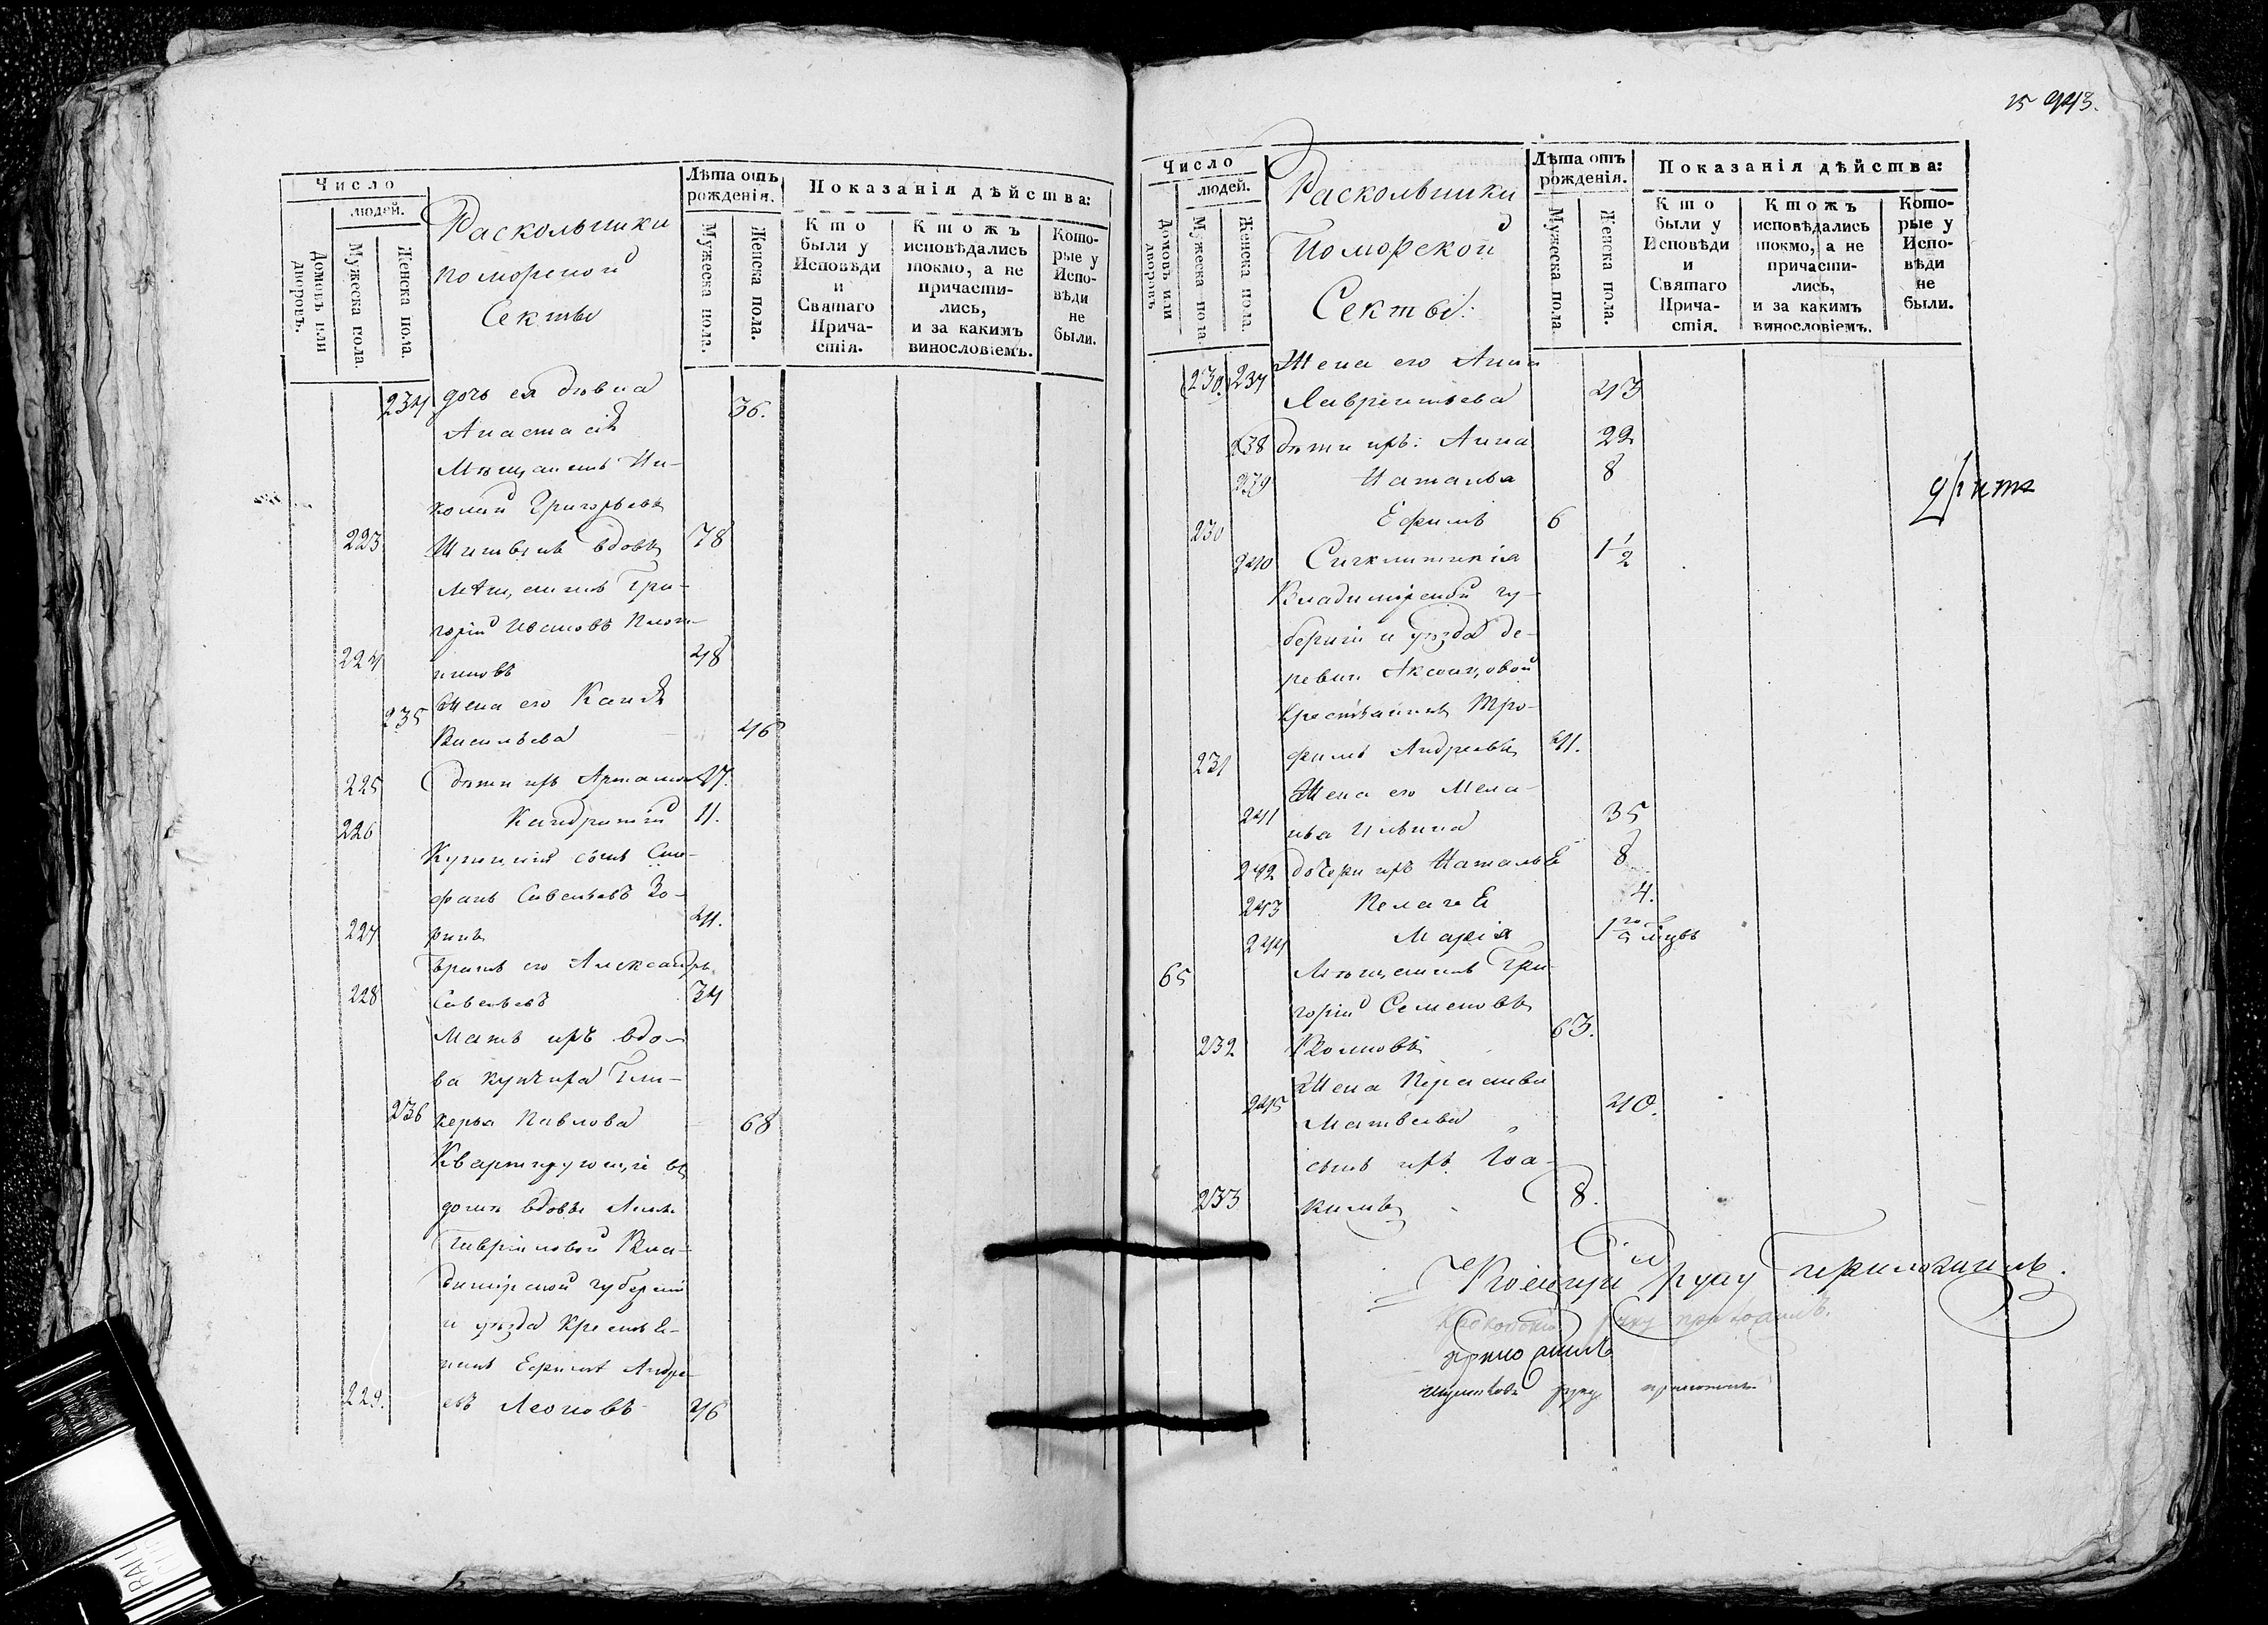 Число
людей.
Домовъ или дворовъ.
Мужеска пола.
Женска пола.
Раскольники
поморской
Секты
Лѣта отъ рожденія.
Мужеска пола.
Женска пола.
Показанія дѣйства:
Кто были у Исповѣди и Святаго Причастія.
Ктожъ исповѣдались токмо, а не причастились, и за какимъ винословіемъ.
Которые у Исповѣди не были.
234 дочь ея дѣвка 36.
Анастасія
Мѣщанинъ Ни-
колай Григорьевъ
223 вдовъ 78
Мѣщанинъ Гри-
горій Ивановъ
224 48
235 Жена его
Васильева 46
225 дѣти ихъ 17.
226 Кандратій 11.
Купецкій сынъ Сте-
фанъ Савельевъ Зо-
227 ринъ 41.
братъ его Александръ
228 Савельевъ 34
Мать ихъ вдо-
ва купчиха Гли-
236 керья Павлова 68
Квартирующіе въ
домѣ вдовы
Гавриловой Вла-
димірской губерніи
и уѣзда крестья-
нинъ Ефимъ Андре-
229. евъ Леоновъ 46
15 443.
Число
людей.
Домовъ или дворовъ.
Мужеска пола.
Женска пола.
Раскольники
Поморской
Секты.
Лѣта отъ рожденія.
Мужеска пола.
Женска пола.
Показанія дѣйства:
Кто были у Исповѣди и Святаго Причастія.
Ктожъ исповѣдались токмо, а не причастились, и за какимъ винословіемъ.
Которые у Исповѣди не были.
237 Жена его Анна
Лаврентьева 43
238 дѣти ихъ: Анна 22
239 Наталья 8
230 Ефимъ 6
240 Сигклитикія 1 1/2
Владимірской гу-
берніи и уѣзда де-
ревни Аксанцовой
крестьянинъ Тро-
231 фимъ Андреевъ 41.
Жена его Мела-
241 нья Ильина 35
242 дочери ихъ Наталья 8
243 Пелагея 4.
244 Марія
65 Мѣщанинъ Гри-
горій Семеновъ
232 63.
Жена Параскева
245 Матвеева 40.
сынъ ихъ Іоа-
233 кимъ 8.
руку приложилъ.
руку приложилъ.
приложилъ
руку приложилъ